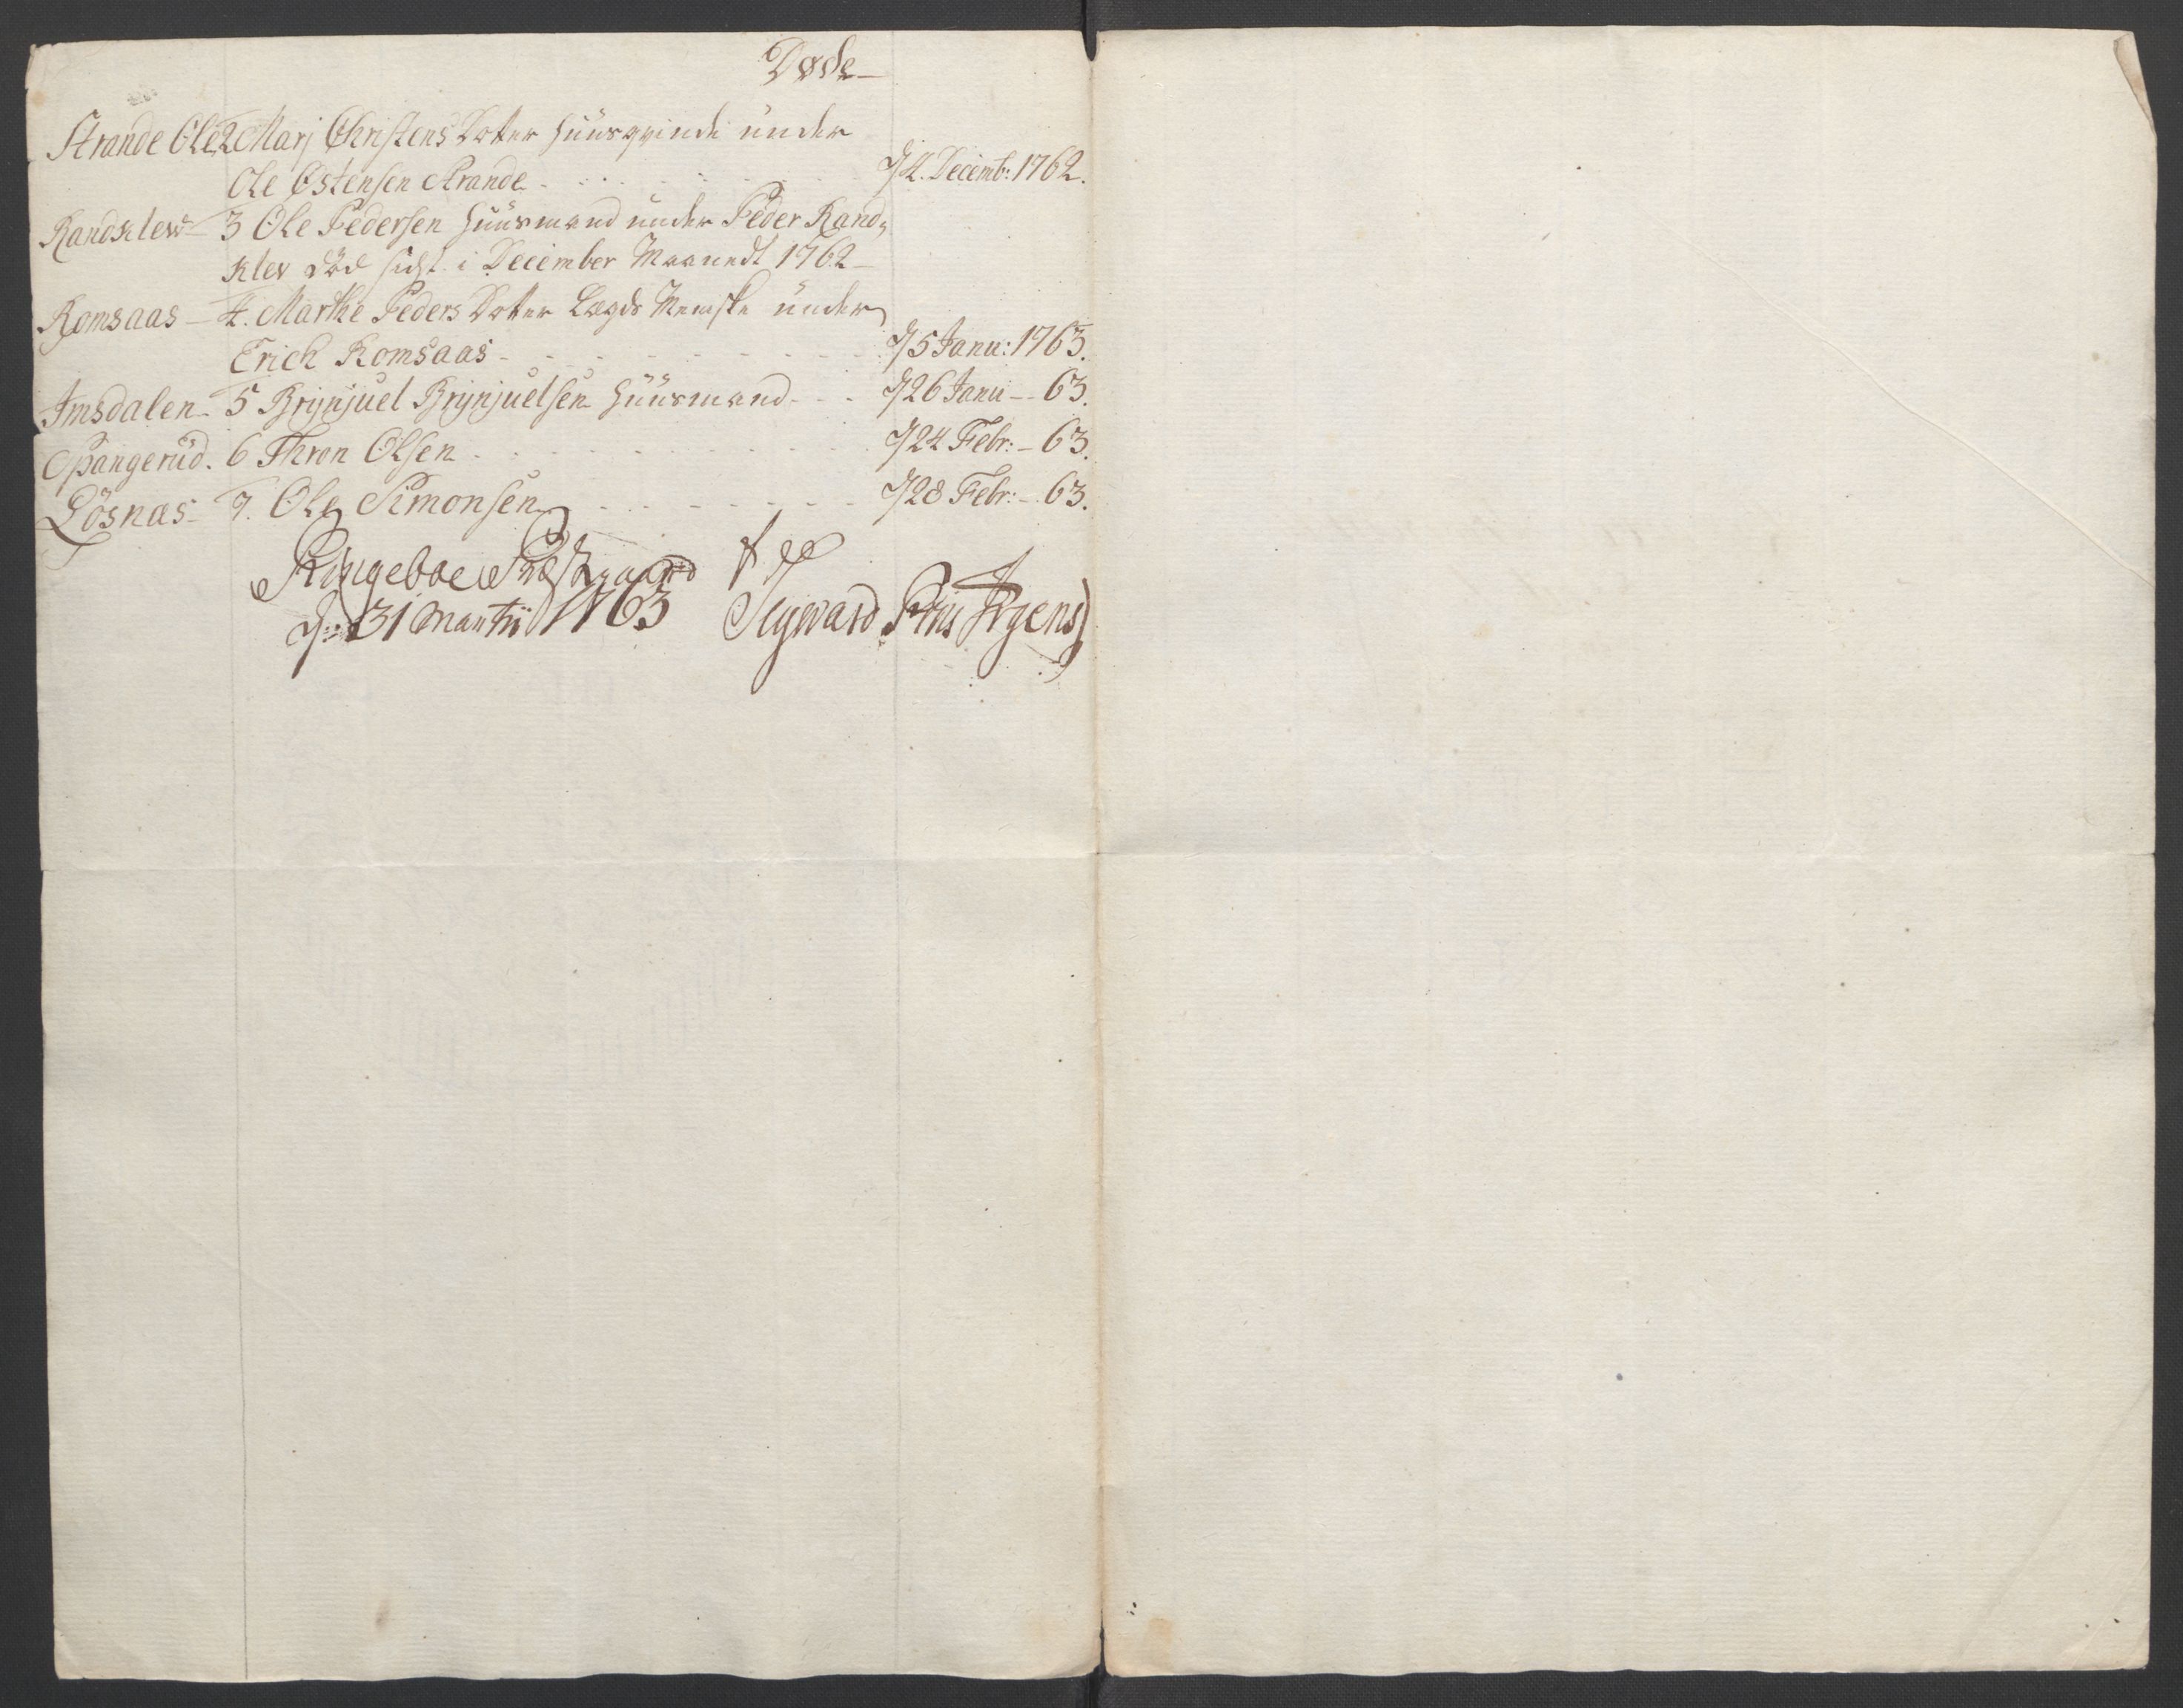 Døde
Strande Ole. 2 Marj Christens Dotter Huusqvinde under
Ole Østensen Strande - - - d. 4. Decemb: 1762.
Randklev - 3 Ole Pedersen Huusmand under Peder Rand-
klev död sidst i December Maanedt 1762
Romsaas - 4. Marthe Peders Dotter Lægds Menniske under
Erich Romsaas - - - d. 5 Janu: 1763.
Imsdalen. 5 Brynjuel Brynjuelsen Huusmand - - - d. 26 Janu - 63.
Spangerud. 6 Thron Olsen - - - d. 24 Febr: - 63.
Lösnæs - 7. Ole Simonsen - - - d. 28 Febr: - 63.
Ringeboe Præstegaard
d: 31 Martii 1763
Sigvard Irgens